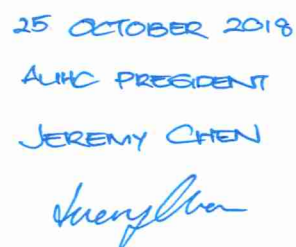 25 OCTOBER 2018
AUHC PRESIDENT
JEREMY CHEN
Jeremy Chen